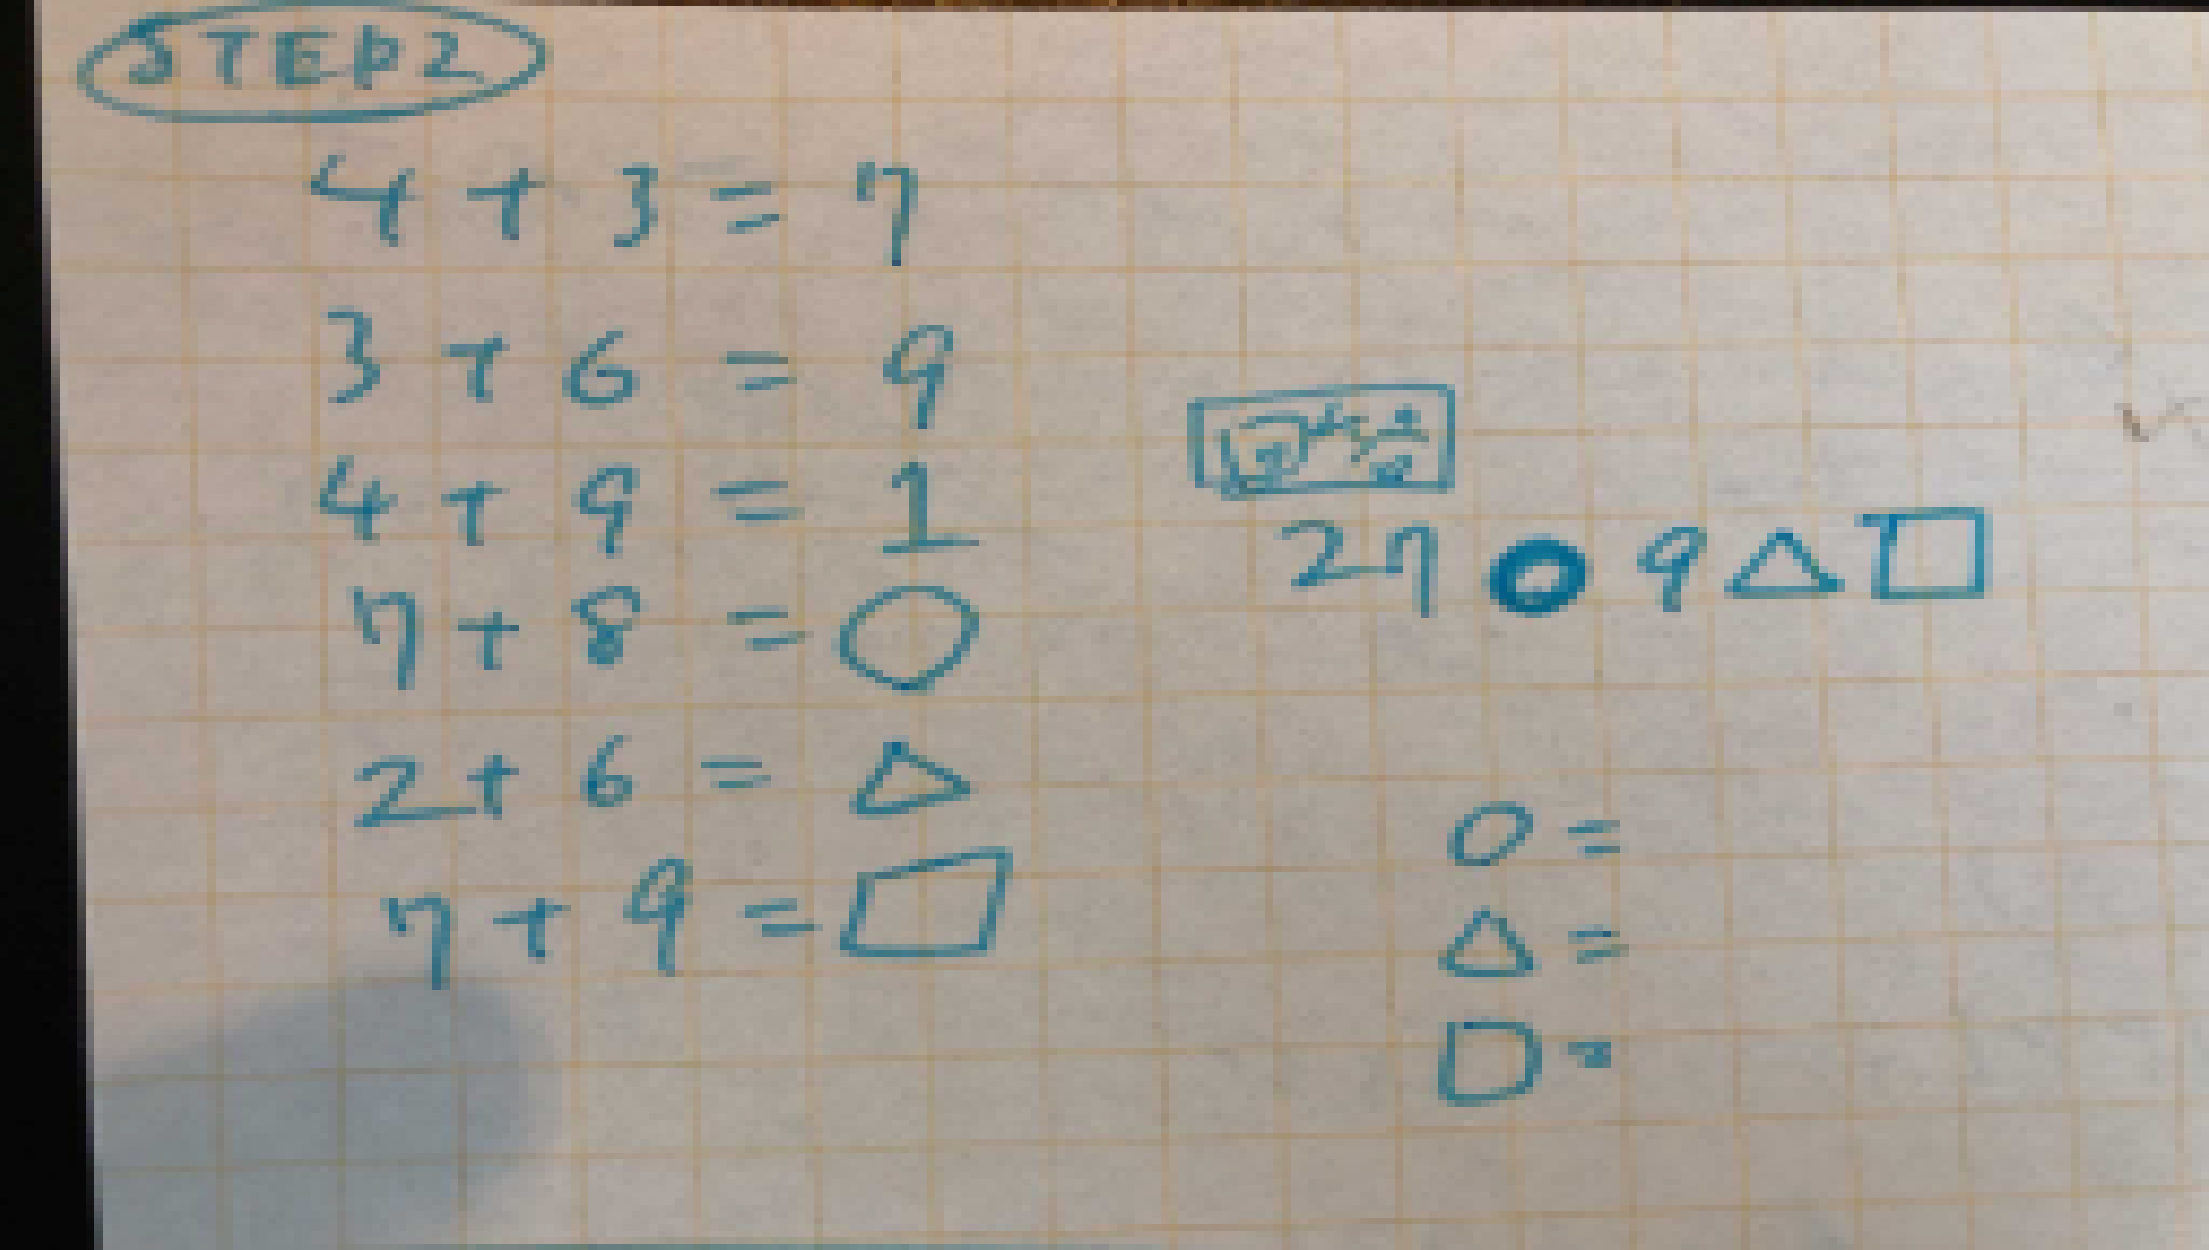 STEP2
4 + 3 = 7
3 + 6 = 9
4 + 9 = 1
7 + 8 = ○
2 + 6 = △
7 + 9 = □
27 ○ 9 △ □
○ =
△ =
□ =